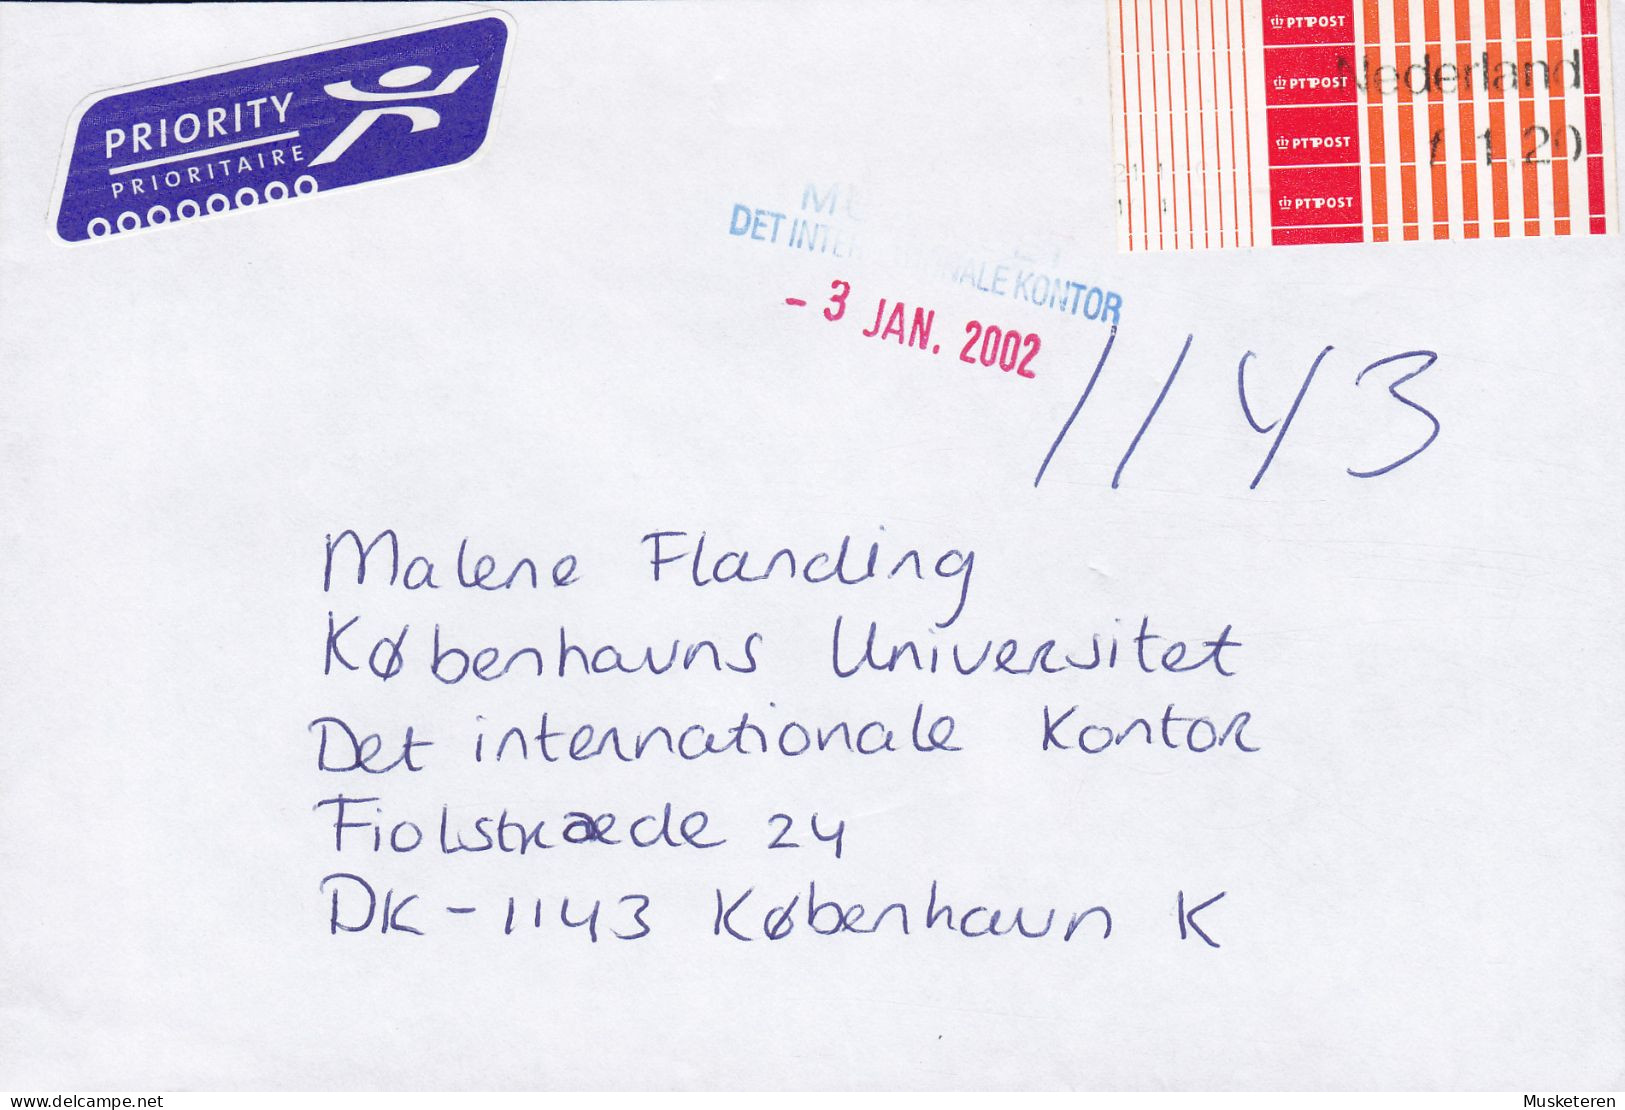 PRIORITY
PRIORITAIRE
PTT POST
PTT POST
PTT POST
PTT POST
Nederland
f 1.20
DET INTERNATIONALE KONTOR
- 3 JAN. 2002
1143
Malene Flanding
Københavns Universitet
Det internationale Kontor
Fiolstræde 24
DK-1143 København K
www.delcampe.net
Musketeren